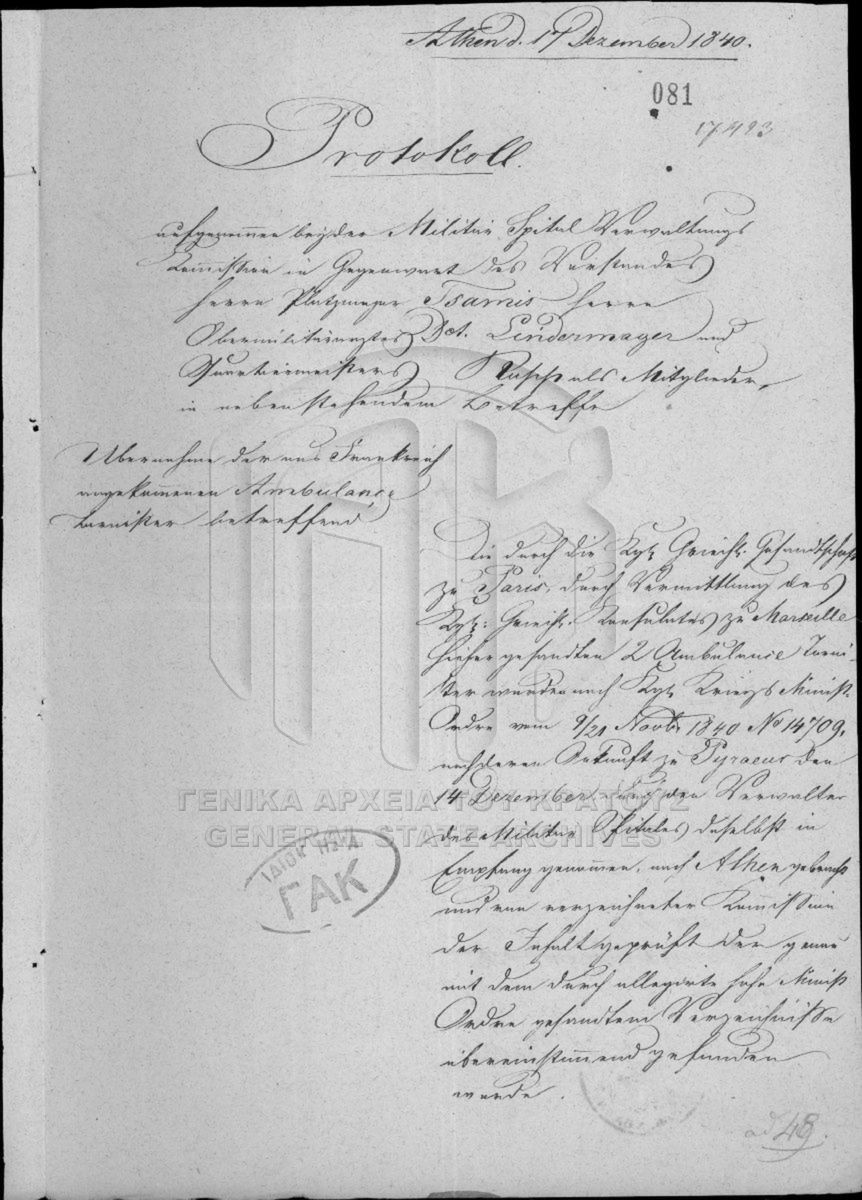 Athen d. 17 Dezember 1840.
081
17423
Protokoll.
aufgenommen bey der Militär Spital Verwaltungs
Kommission in Gegenwart des Vorstandes
Herrn Platzmajor Tsamis Herrn
Obermilitärarztes Dct. Lindermayer und
Quartiermeisters als Mitglieder,
in nebenstehendem Betreffe
Übernahme der aus Frankreich
angekommenen Ambulance
Tornister betreffend
Die durch die Kgl. Griech. Gesandtschaft
zu Paris, durch Vermittlung des
Kgl: Griech. Konsulates zu Marseille
hieher gesandten 2 Ambulance Torni-
ster wurden nach Kgl. Kriegs Minist.
Ordre vom 9/21 Novbr 1840 No 14709,
nach deren Ankunft zu Pyraeus den
14 Dezember durch den Verwalter
des Militär Spitales daselbst in
Empfang genommen, nach Athen gebracht
und von verzeichneter Kommission
der Inhalt geprüft der genau
mit dem durch allegirte hohe Minist
Ordre gesandtem Verzeichnisse
übereinstimmend gefunden
wurde.
ΓΕΝΙΚΑ ΑΡΧΕΙΑ ΤΟΥ ΚΡΑΤΟΥΣ
GENERAL STATE ARCHIVES
ΓΑΚ
ad 48.